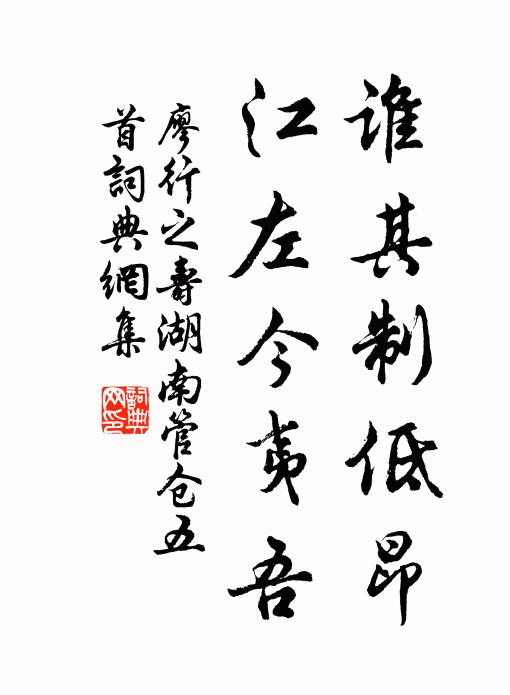 谁其制低昂
江左今夷吾
廖行之壽湖南管仓五
首詞典網集
詞典网印